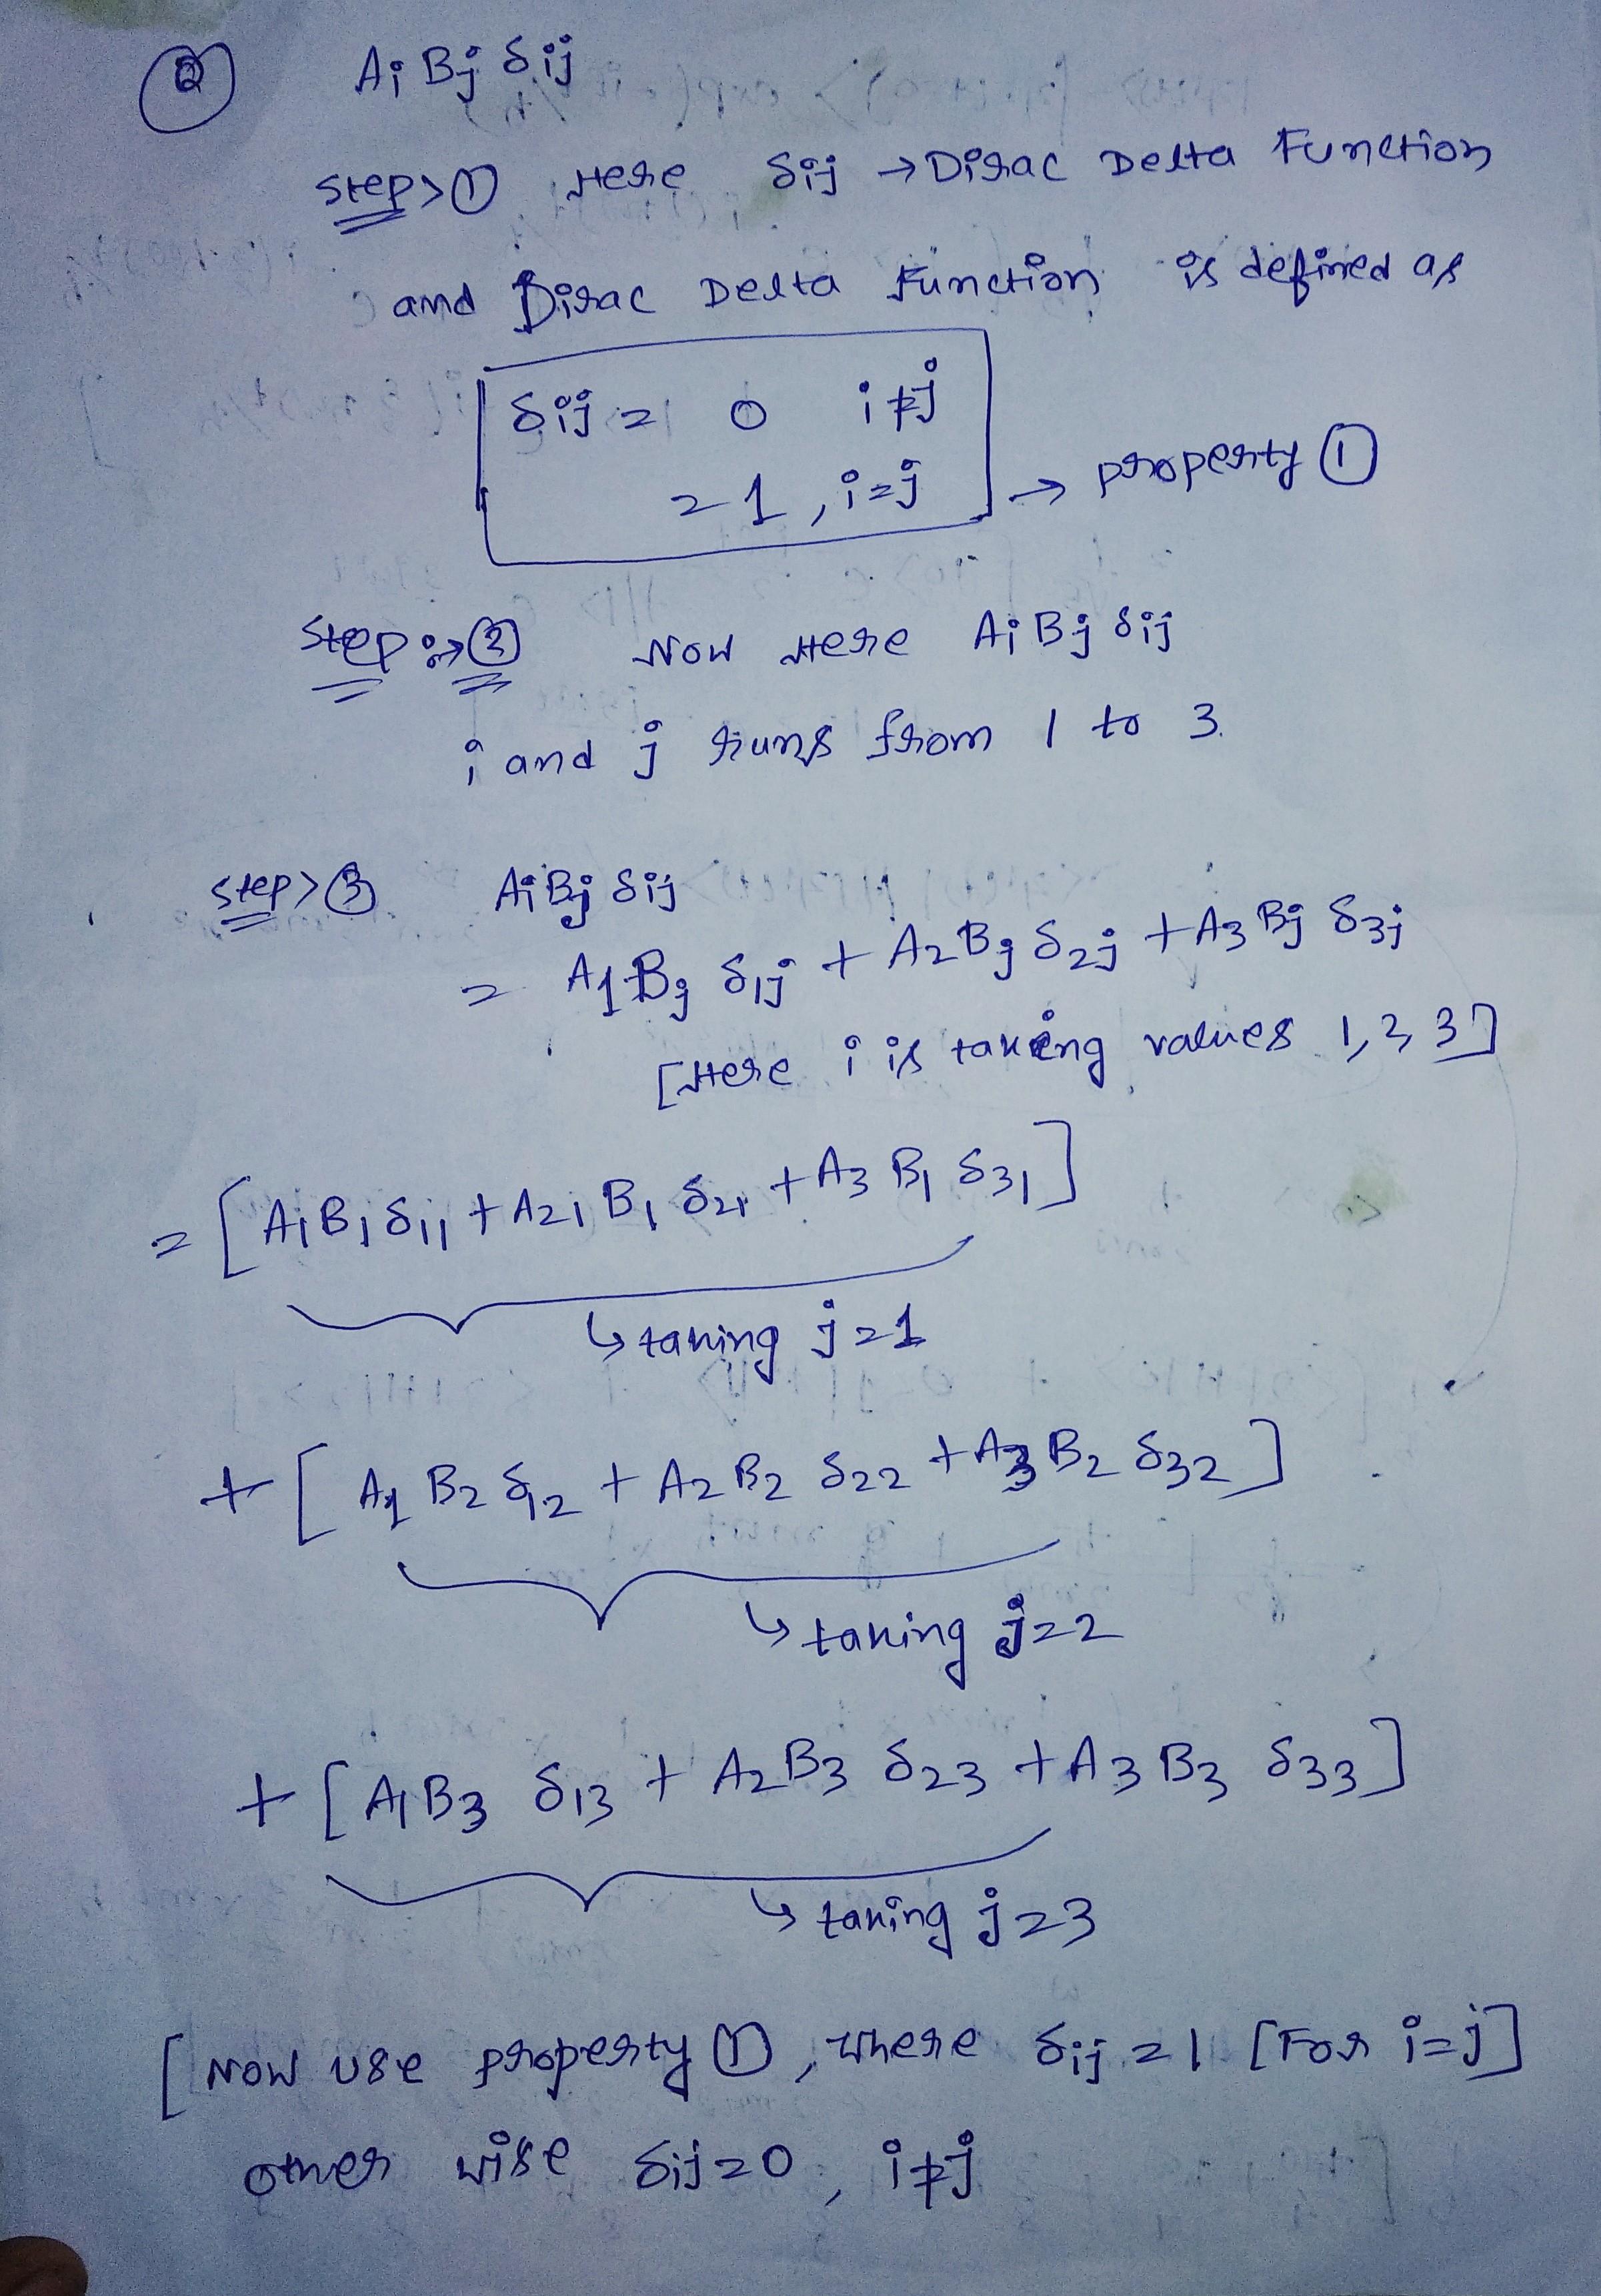 ② Ai Bj δij
Step>① Here δij → Dirac Delta Function
and Dirac Delta Function is defined as
δij = 0 i≠j
= 1, i=j → property ①
Step:→② Now Here Ai Bj δij
i and j runs from 1 to 3.
Step>③ Ai Bj δij
= A1 Bj δ1j + A2 Bj δ2j + A3 Bj δ3j
[Here i is taking values 1, 2, 3]
= [A1 B1 δ11 + A21 B1 δ21 + A3 B1 δ31]
↳ taking j=1
+ [A1 B2 δ12 + A2 B2 δ22 + A3 B2 δ32]
↳ taking j=2
+ [A1 B3 δ13 + A2 B3 δ23 + A3 B3 δ33]
↳ taking j=3
[Now use property ①, where δij = 1 [For i=j]
other wise δij=0, i≠j